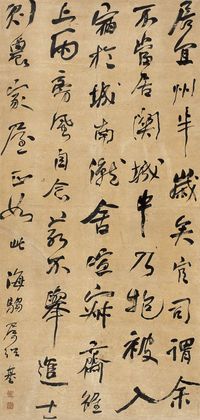 居宜州半歲矣官司謂余
不當居關城中乃抱被入
宿於城南僦舍喧寂齋雖
上雨旁風自念若不舉進士
則農家屋正如此